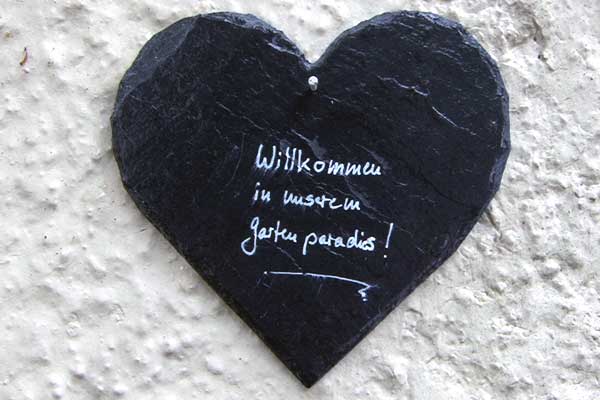 Willkommen
in unserem
garten paradies!